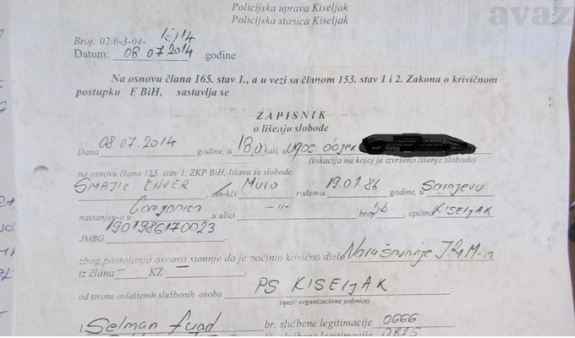 avaz
Policijska uprava Kiseljak
Policijska stanica Kiseljak
Broj: 02/6-3-04-
Datum: 08.07.2014 godine
Na osnovu člana 165. stav 1., a u vezi sa članom 153. stav 1 i 2. Zakona o krivičnom
postupku F BiH, sastavlja se
ZAPISNIK
o lišenju slobode
Dana 08.07.2014 godine, u 18,00 sati, u ugos. objek
(lokacija na kojoj je izvršeno lišenje slobode)
na osnovu člana 153. stav 1. ZKP BiH, lišava se slobode:
SMAJIĆ ENVER sin-kći Mujo rođen-a 19.01.86 godine, u Sarajevu
nastanjen-a u u ulici - 11 - broj bb, općina KISELJAK
1901986170023
JMBG
zbog postojanja osnova sumnje da je počinio krivično djelo Narušavanje JRM-a
iz člana - KZ -
PS KISELJAK
od strane ovlaštenih službenih osoba
(naziv organizacione jedinice)
1 Selman Fuad br. službene legitimacije 0666